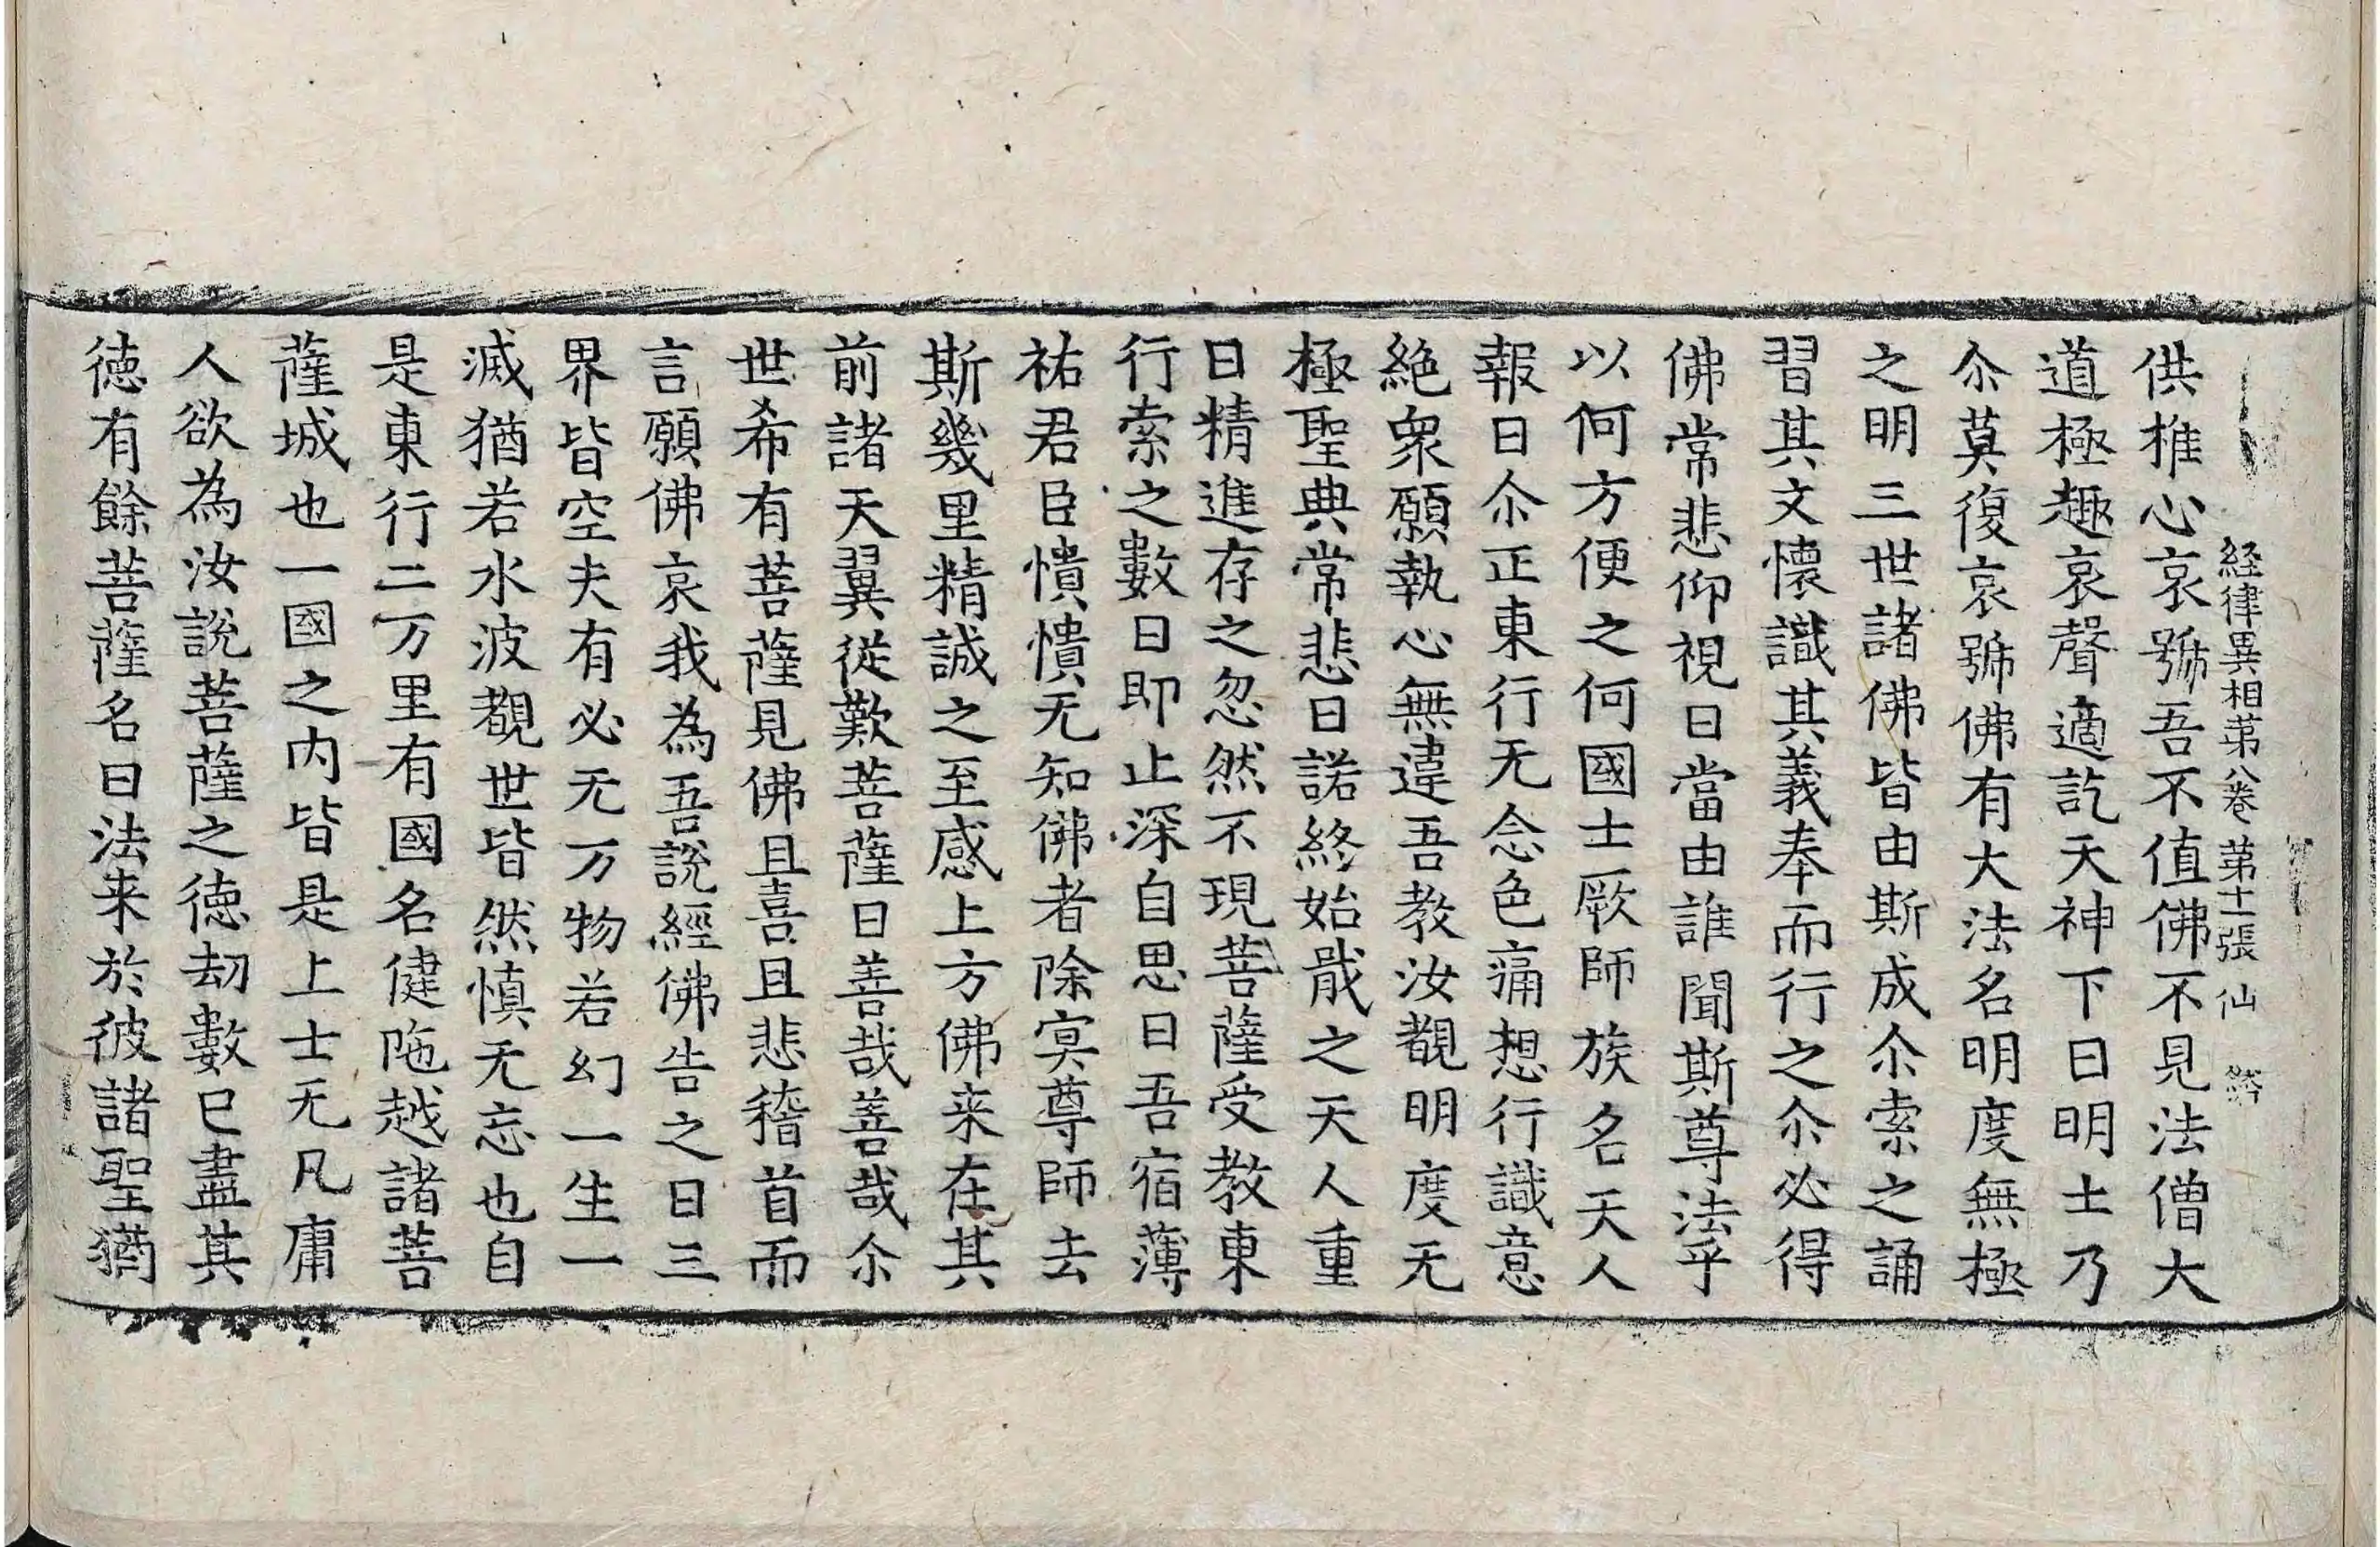 経律異相第八卷 第十一張 仙
供推心哀號吾不值佛不見法僧大
道極趣哀聲適訖天神下曰明士乃
尒莫復哀號佛有大法名明度無極
之明三世諸佛皆由斯成尒索之誦
習其文懷識其義奉而行之尒必得
佛常悲仰視曰當由誰聞斯尊法乎
以何方便之何國土厥師族名天人
報曰尒正東行无念色痛想行識意
絕衆願執心無違吾教汝覩明度无
極聖典常悲曰諾終始戢之天人重
曰精進存之忽然不現菩薩受教東
行索之數日即止深自思曰吾宿薄
祐君臣憒憒无知佛者除冥尊師去
斯幾里精誠之至感上方佛来在其
前諸天翼從歎菩薩曰善哉善哉尒
世希有菩薩見佛且喜且悲稽首而
言願佛哀我為吾說經佛告之曰三
界皆空夫有必无万物若幻一生一
滅猶若水波覩世皆然慎无忘也自
是東行二万里有國名健陁越諸菩
薩城也一國之内皆是上士无凡庸
人欲為汝說菩薩之徳劫數已盡其
徳有餘菩薩名曰法来於彼諸聖猶